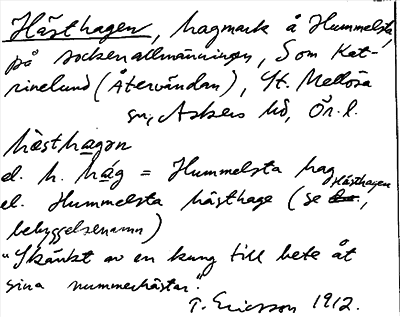 Hästhagen, hagmark å Hummelsta,
på sockenallmänningen, Som Kat-
rinelund (Återvändan), St. Mellösa
sn, Askers hd, Ör. l.
hästhagan
el. h. hág = Hummelsta hag
el. Hummelsta hästhage (se Hästhagen,
bebyggelsenamn)
"Skänkt av en kung till bete åt
sina nummerhästar."
T. Ericsson 1912.